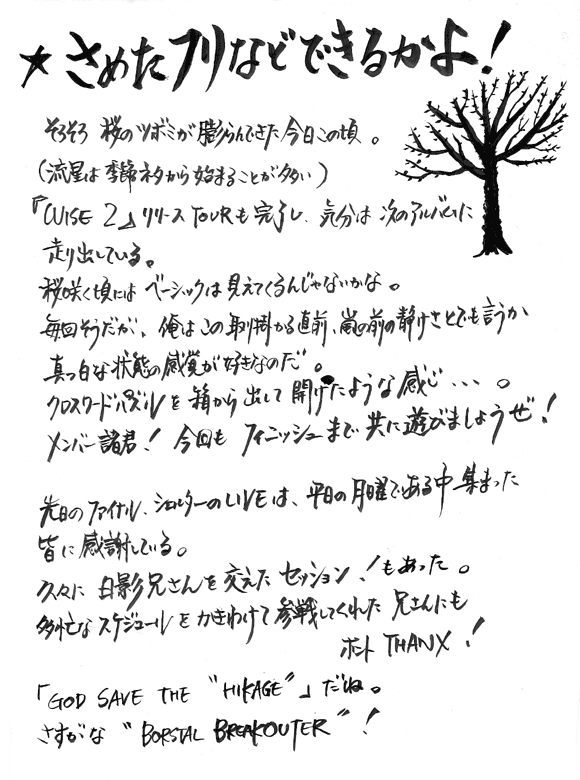 ★さめたフリなどできるかよ!
そろそろ 桜のツボミが膨らんできた今日この頃。
(流星は季節ネタから始まることが多い)
『WISE 2』リリースTOURも完了し、気分は次のアルバムに
走り出している。
桜咲く頃には ベーシックは見えてくるんじゃないかな。
毎回そうだが、俺はこの取り掛かる直前、嵐の前の静けさとでも言うか
真っ白な状態の感覚が好きなのだ。
クロスワードパズルを箱から出して開けたような感じ…。
メンバー諸君! 今回も フィニッシュまで共に遊びましょうぜ!
先日のファイナル、シェルターのLIVEは、平日の月曜である中集まった
皆に感謝している。
久々に日影兄さんを交えたセッション!もあった。
多忙なスケジュールをかきわけて参戦してくれた兄さんにも
ホント THANX!
「GOD SAVE THE "HIKAGE"」だね。
さすがな "BORSTAL BREAKOUTER"!